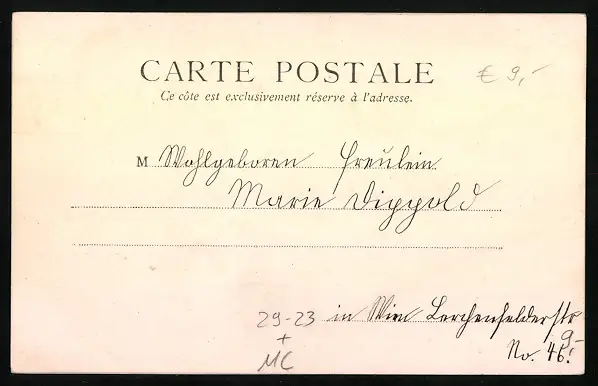 CARTE POSTALE
€ 9,-
Ce côte est exclusivement réserve à l'adresse.
M Wohlgeboren Freulein
Marie Dippold
29-23 in Wien Lerchenfelderstr
+ 9-
MC No. 46!